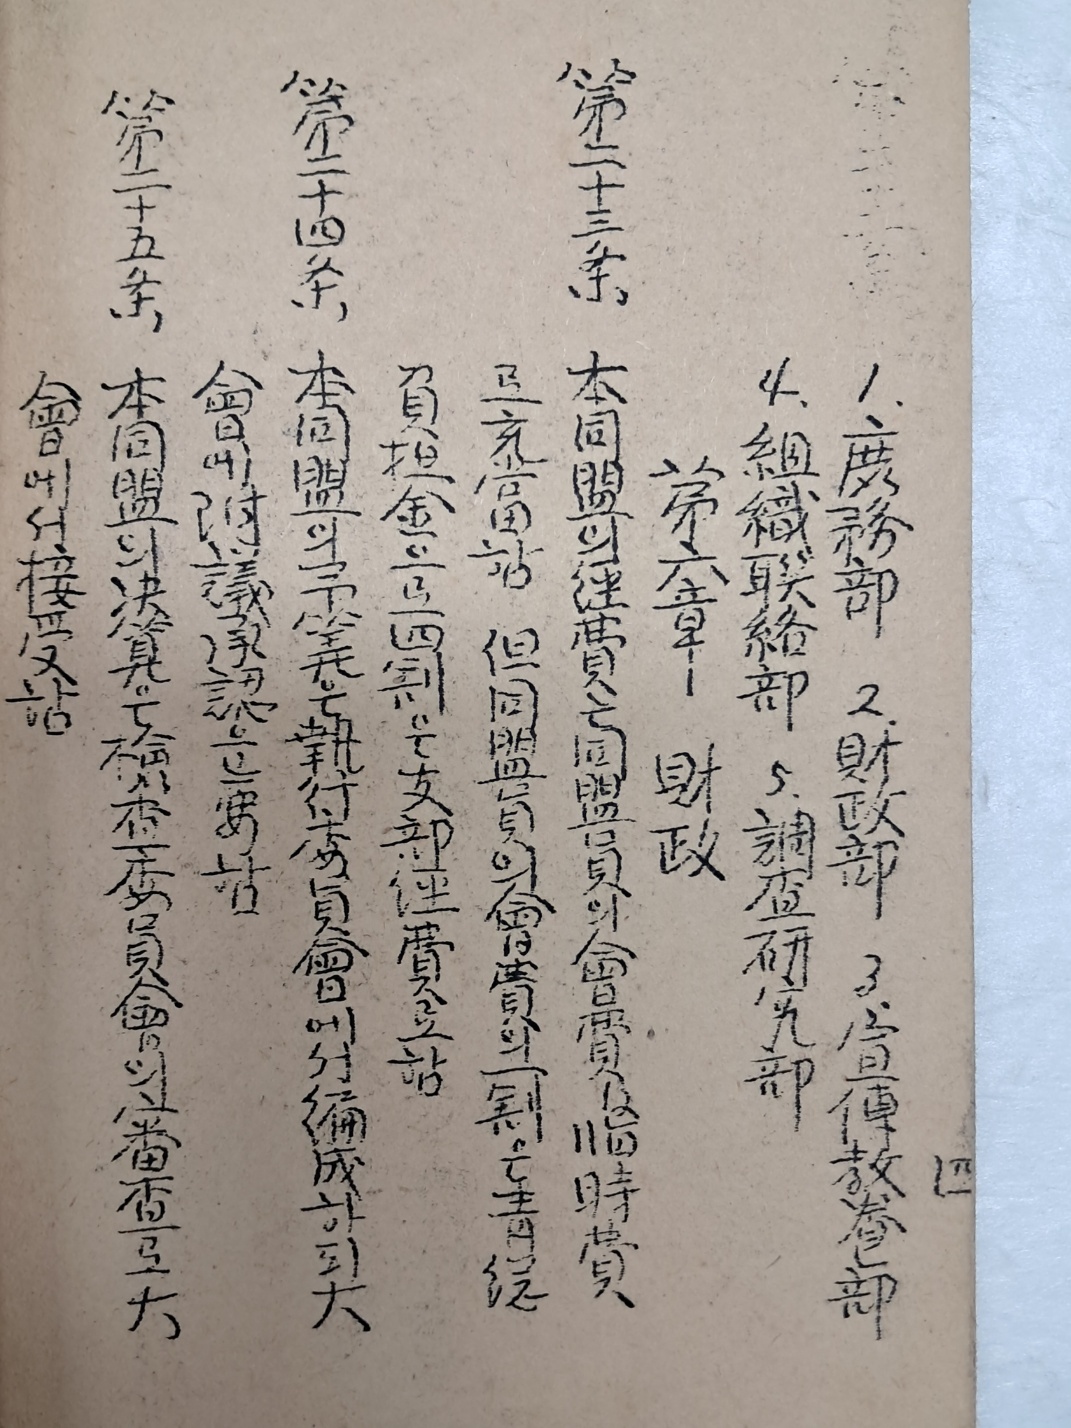 1. 庶務部 2. 財政部 3. 宣傳教養部
4. 組織联絡部 5. 調查研究部
第六章 財政
第二十三条 本同盟의 経費는 同盟員의 會費及臨時費
로 充當함 但同盟員의 會費의 一割은 青総
負担金으로 四割은 支部経費로 함
第二十四条 本同盟의 予算은 執行委員會에서 編成하되 大
會에 附議承認을 要함
第二十五条 本同盟의 決算은 檢査委員會의 審査로 大
會에서 接受함
四